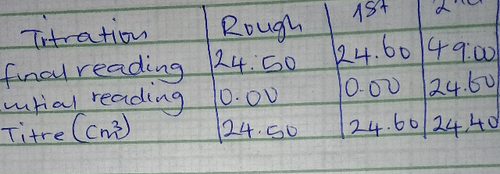 Titration Rough 1st 2nd
final reading 24.50 24.60 49.00
initial reading 0.00 0.00 24.60
Titre (cm³) 24.50 24.60 24.40